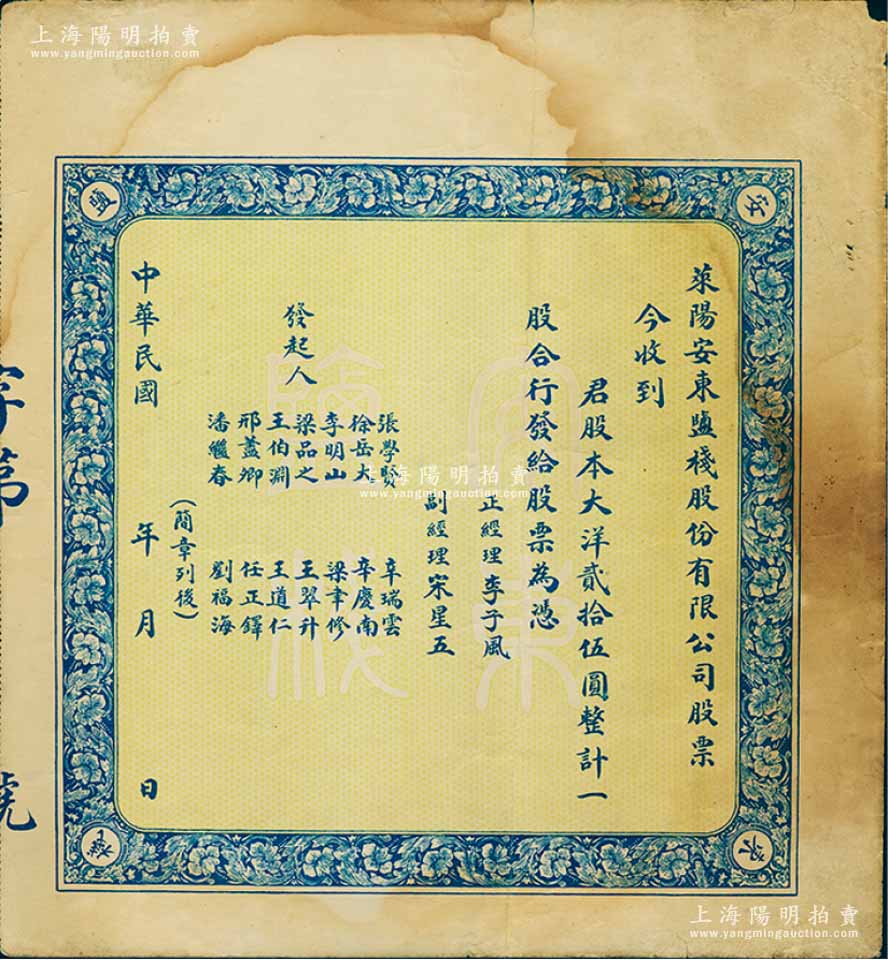 上海陽明拍賣
www.yangmingauction.com
安
東
鹽
棧
萊陽安東鹽棧股份有限公司股票
今收到
君股本大洋貳拾伍圓整計一
股合行發給股票為憑
正經理李子風
副經理宋星五
發起人
張學賢 辛瑞雲
徐岳大 辛慶南
李明山 梁聿修
梁品之 王翠升
王伯淵 王道仁
邢藎卿 任正鐸
潘繼春 劉福海
(簡章列後)
中華民國 年 月 日
字第 號
安東
鹽棧
上海陽明拍賣
www.yangmingauction.com
上海陽明拍賣
www.yangmingauction.com